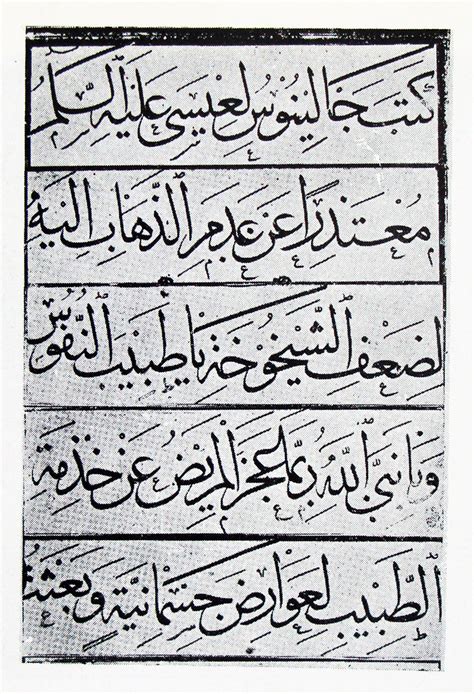 كَتَبَ جَالِينُوسُ لِعِيسَى عَلَيْهِ السَّلٰمُ
مُعْتَذِرًا عَنْ عَدَمِ الذَّهَابِ إِلَيْهِ
لِضَعْفِ الشَّيْخُوخَةِ يَا طَبِيبَ النُّفُوسِ
وَيَا نَبِيَّ اللّٰهِ رُبَّمَا عَجَزَ الْمَرِيضُ عَنْ خِدْمَةِ
الطَّبِيبِ لِعَوَارِضَ جِسْمَانِيَّةٍ وَبَعَثْتُ